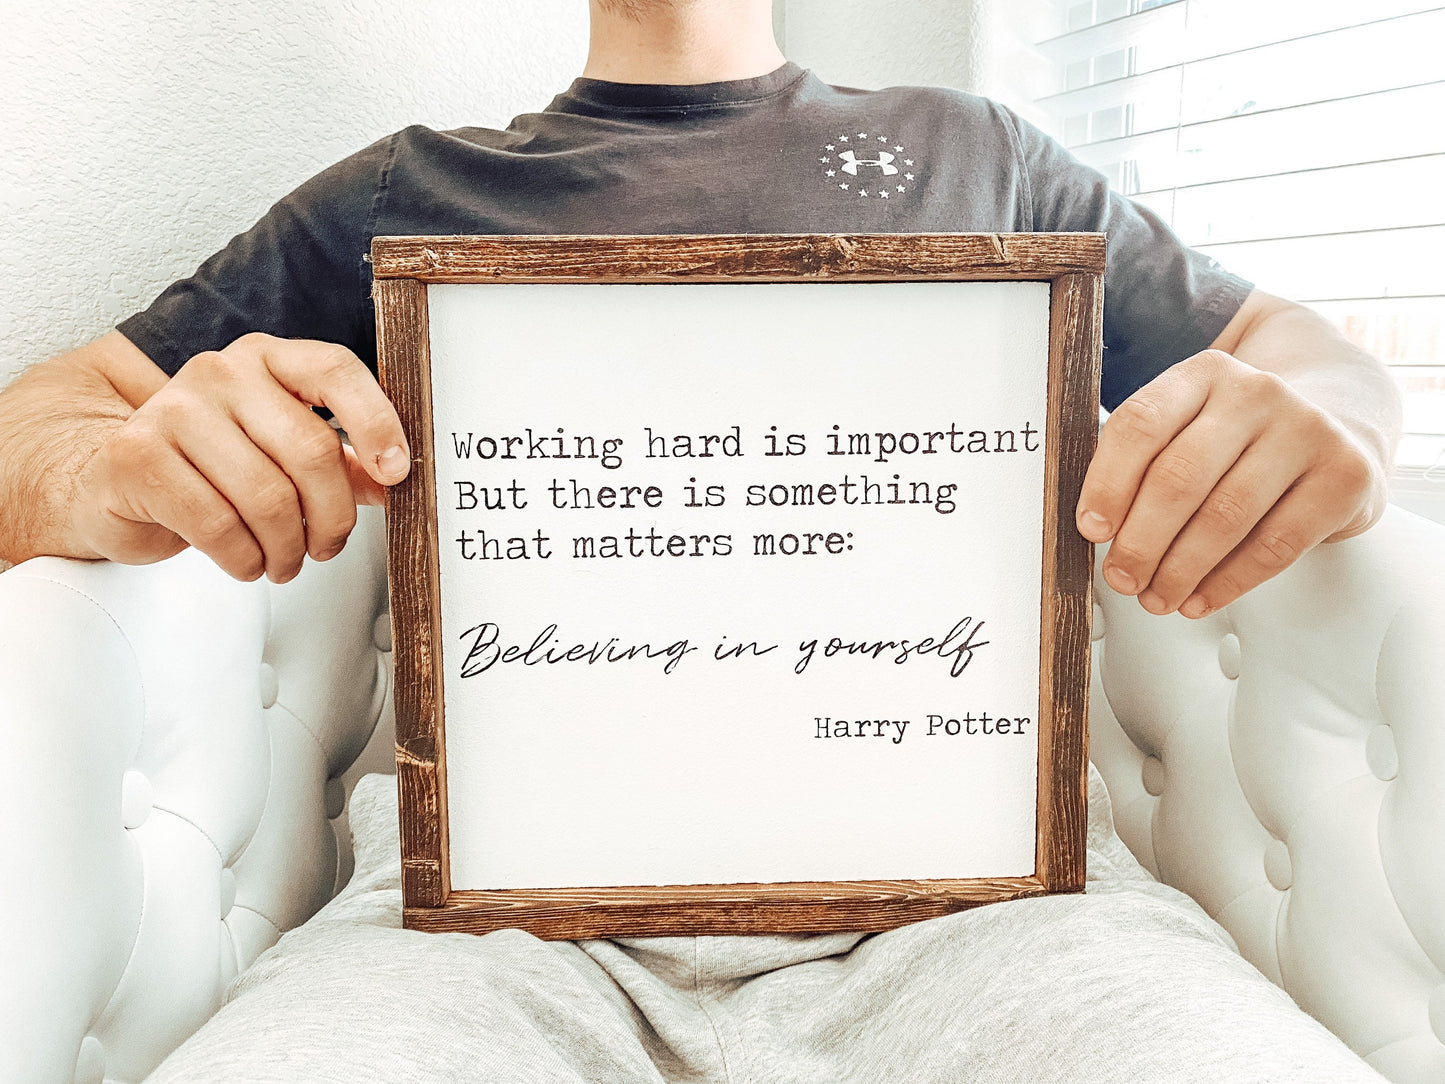 Working hard is important
But there is something
that matters more:
Believing in yourself
Harry Potter